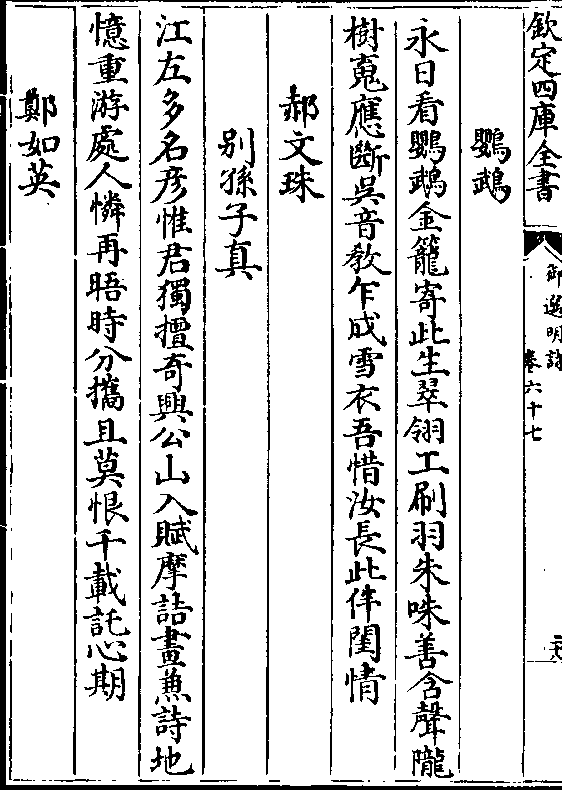 欽定四庫全書
御選明詩
卷六十七
鸚鵡
永日看鸚鵡金籠寄此生翠翎工刷羽朱咮善含聲隴
樹䰟應斷吳音教乍成雪衣吾惜汝長此伴閨情
郝文珠
別孫子真
江左多名彦惟君獨擅奇興公山入賦摩詰畫兼詩地
憶重游處人憐再晤時分攜且莫恨千載託心期
鄭如英